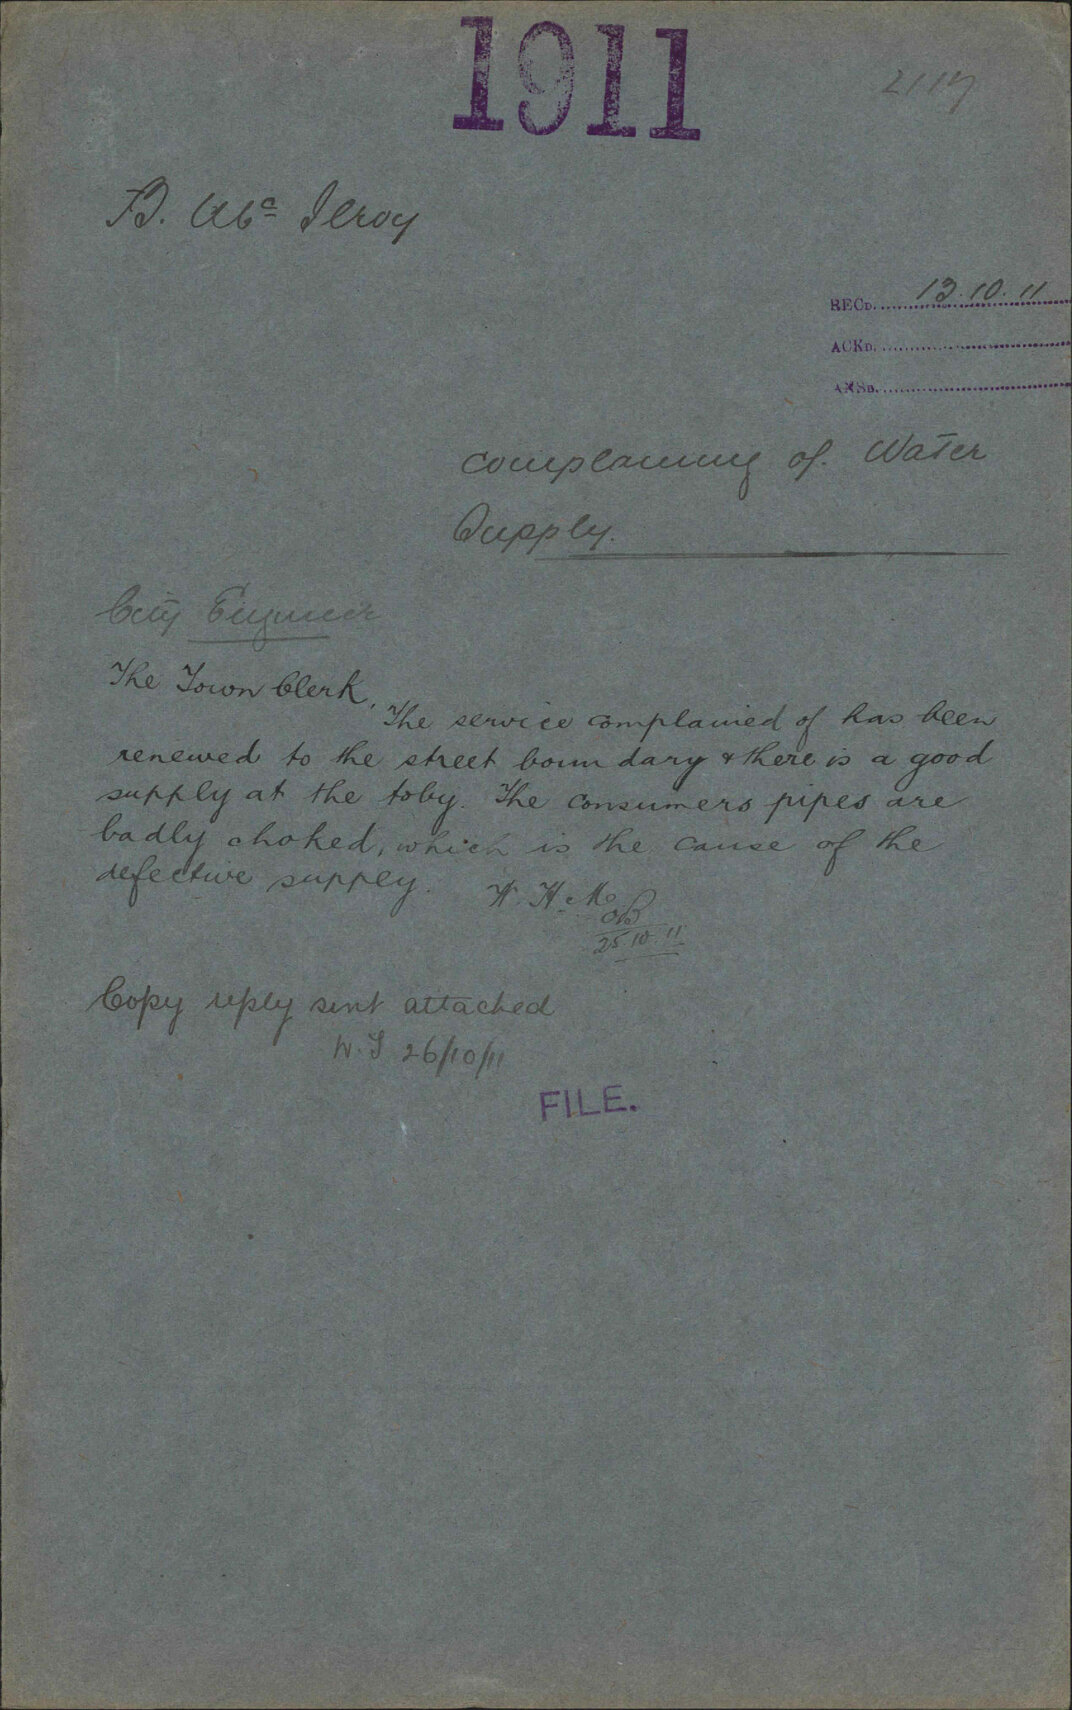 1911
B. Mc Ilroy
RECD. 13.10.11
ACKD.
ANSD.
Complaining of Water
Supply.
City Engineer
The Town Clerk,
The service complained of has been
renewed to the street boundary & there is a good
supply at the toby. The consumers pipes are
badly choked, which is the cause of the
defective supply.
25.10.11
Copy reply sent attached
26/10/11
FILE.